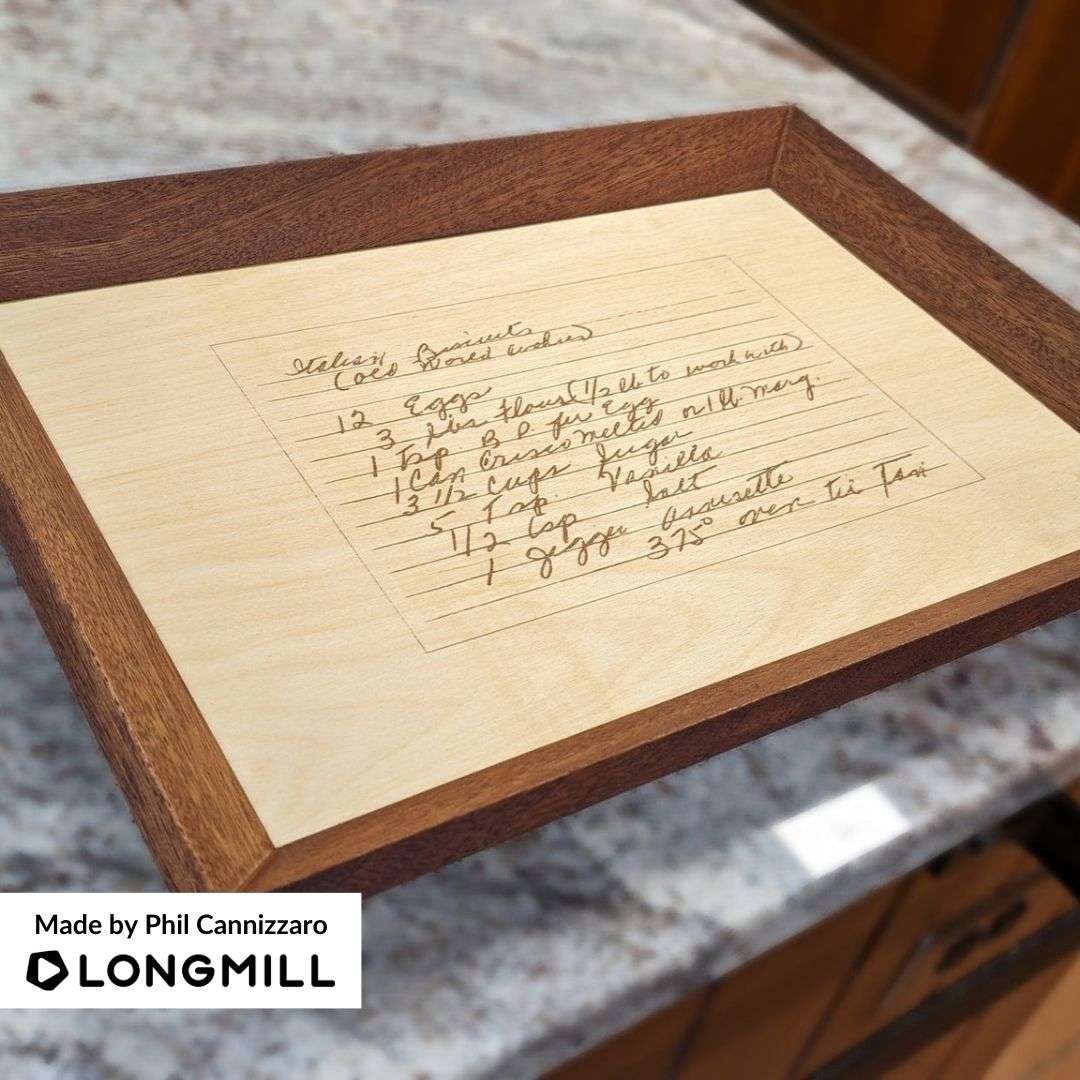 Italian Biscuits
(Old World Cookies)
12 Eggs
3 lbs. Flour (1/2 lb to work with)
1 Tsp B P per Egg
1 Can Crisco melted or 1 lb. Marg.
3 1/2 Cups Sugar
5 Tsp. Vanilla
1/2 tsp Salt
1 Jigger Annisette
375° oven til Tan
Made by Phil Cannizzaro
LONGMILL